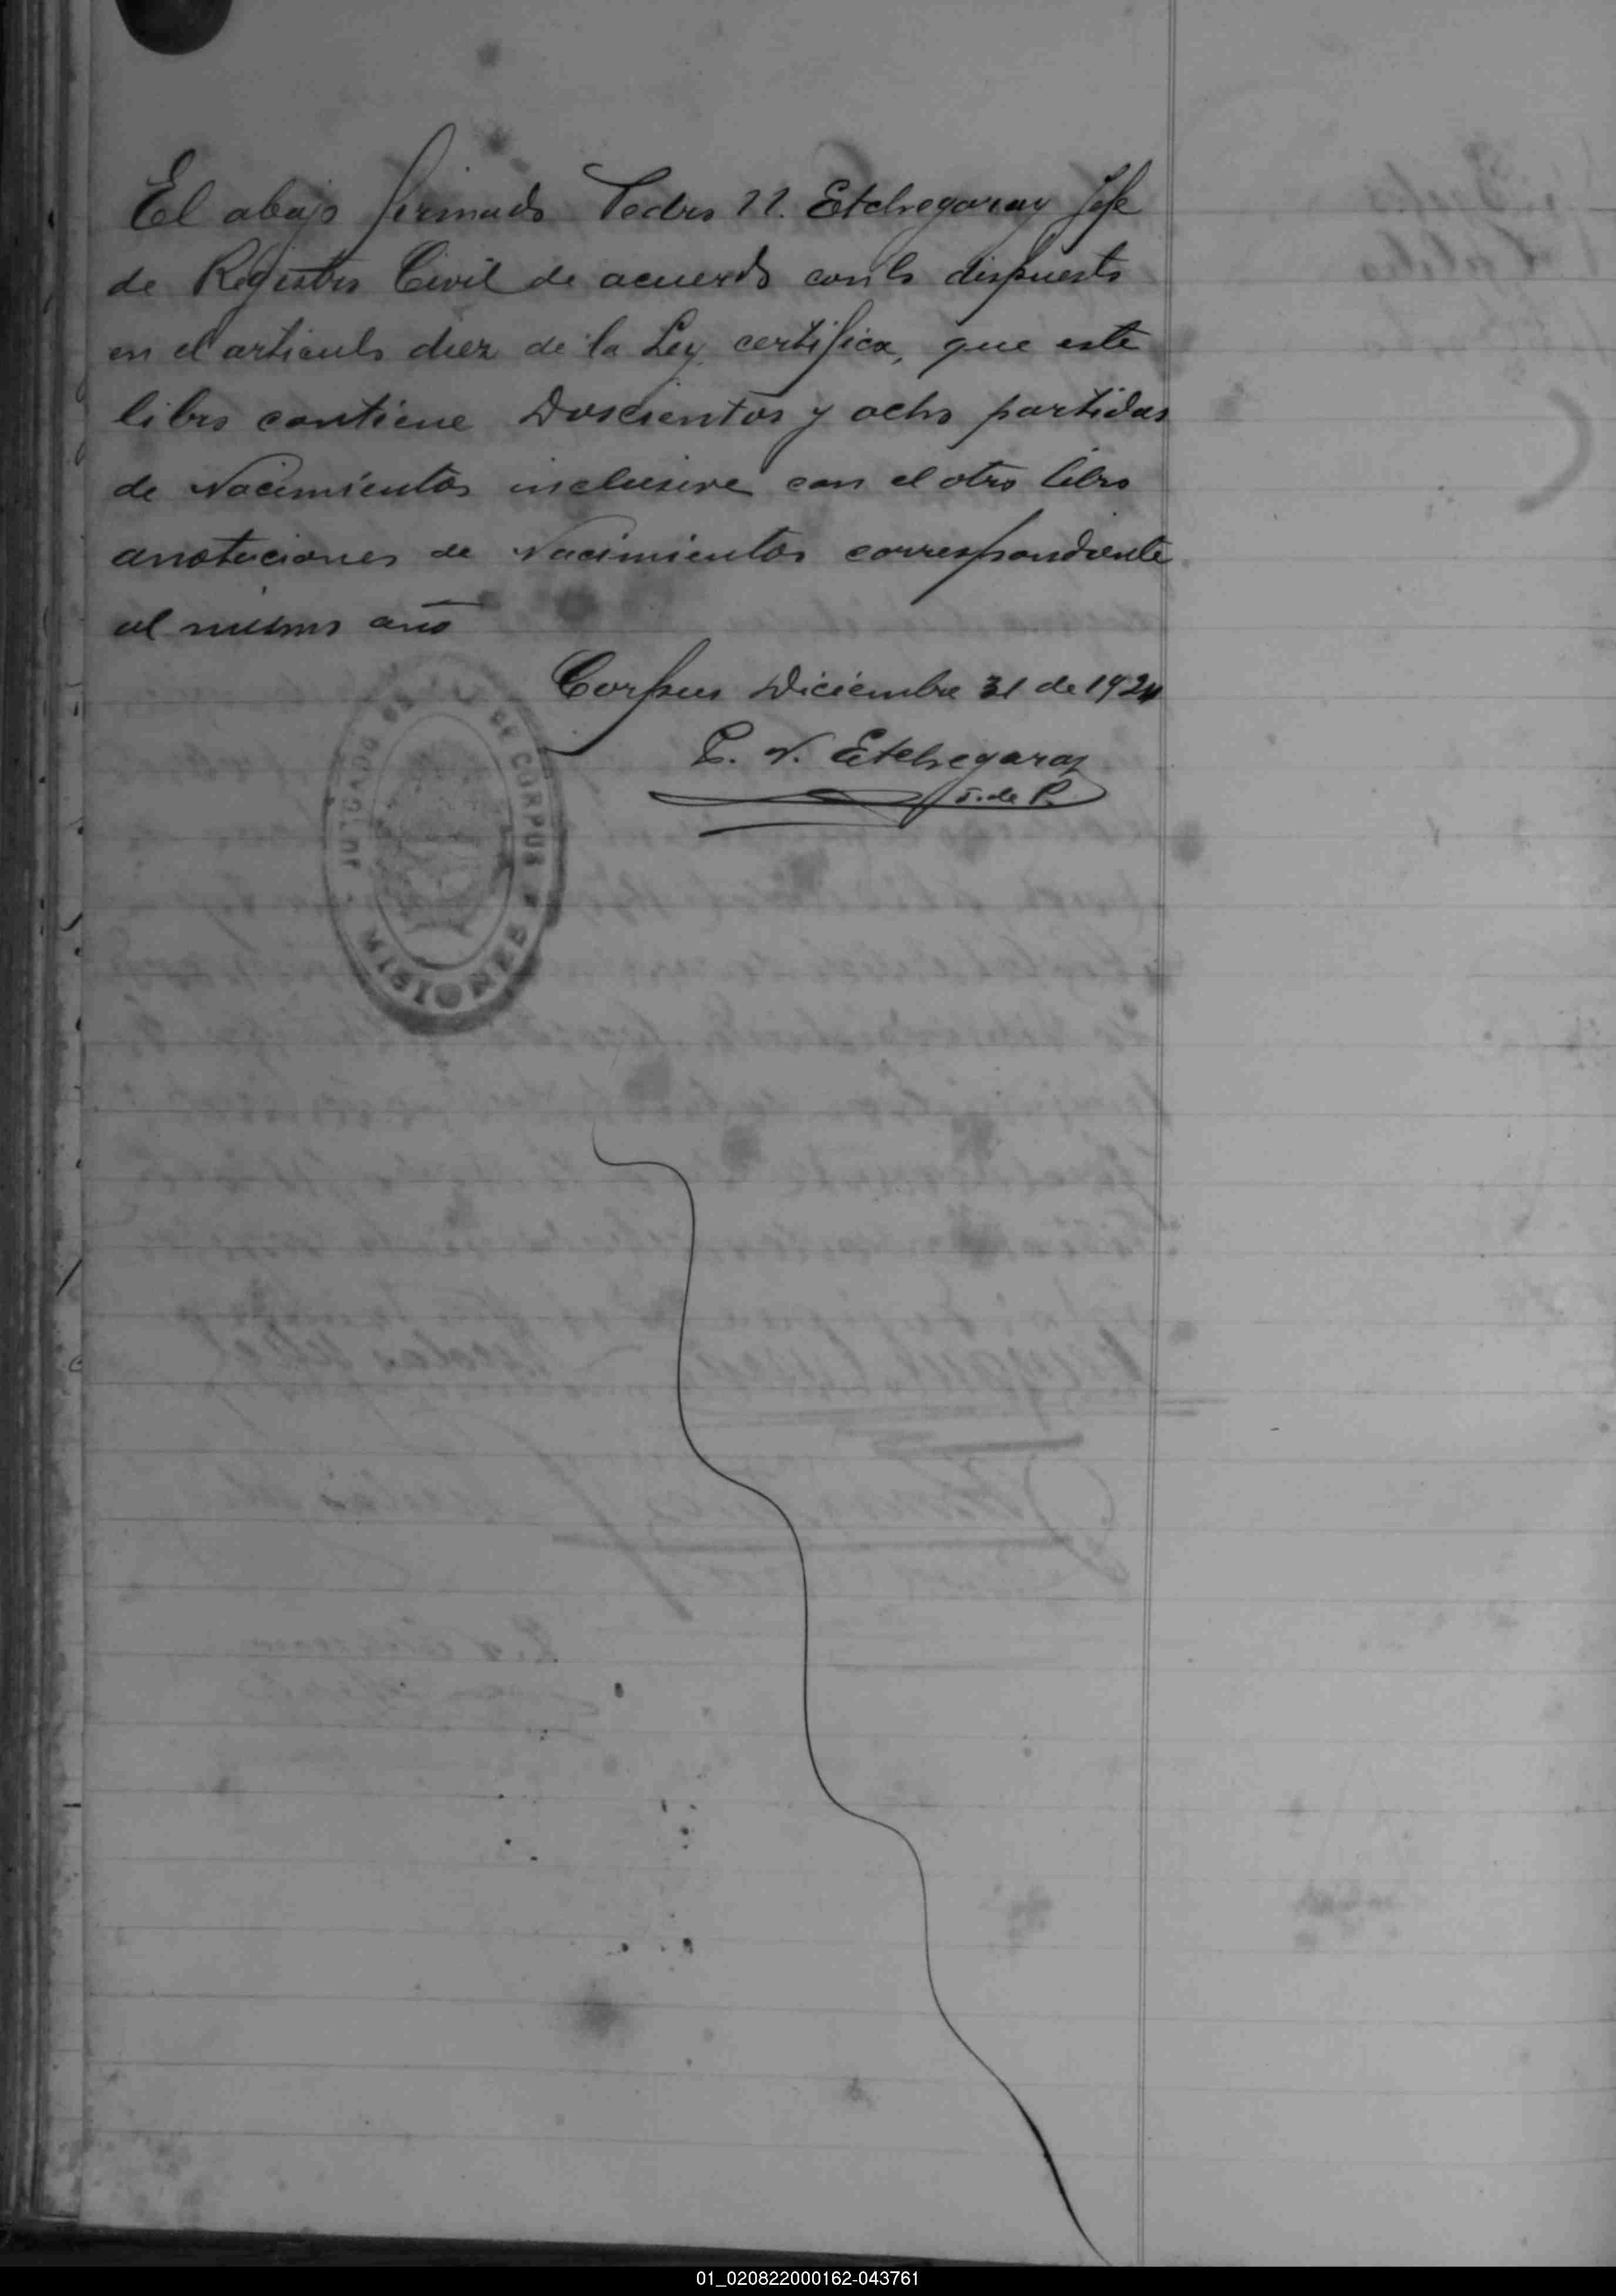 El abajo firmado Pedro N. Etchegaray Jefe
de Registro Civil de acuerdo con lo dispuesto
en el articulo diez de la Ley certifica, que este
libro contiene Doscientos y ocho partidas
de Nacimientos inclusive con el otro libro
anotaciones de Nacimientos correspondiente
al mismo año
Corpus Diciembre 31 de 1924
P. N. Etchegaray
J. de P.
JUZGADO DE PAZ DE CORPUS
MISIONES
01_020822000162-043761